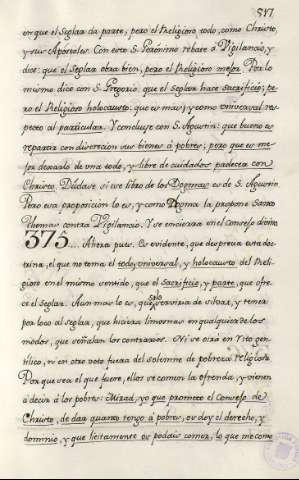 517
en que el Seglar da parte, pero el Religioso todo, como Christo,
y sus Apostoles. Con esto S. Geronimo rebate á Vigilancio, y
dice: que el Seglar obra bien, pero el Religioso mejor. Por lo
mismo dice con S. Gregorio que el Seglar hace Sacrificio; pe-
ro el Religioso holocausto; que es mas; y como universal res-
pecto al particular. Y concluye con S. Agustin: que bueno es
repartir con discrecion sus bienes á pobres; pero que es me-
jor dexarlo de una todo, y libre de cuidados padecer con
Christo. Dúdase si este libro de los Dogmas es de S. Agustin
Pero esta proposicion lo es, y como la propone Santo
Thomas contra Vigilancio. Y se encierra en el Consejo divino
375... Ahora pues. Es evidente, que depreva esta doc-
trina, el que no toma el todo, universal, y holocausto del Reli-
gioso en el mismo sentido, que el Sacrificio, y parte, que ofre-
ce el Seglar. Aun mas lo es, que serviria de silvar, y tener
por loco al Seglar, que hiciera limosnas en qualquiera de los
modos, que señalan los contrarios. Ni se oirá en Tito gen-
tilico, ni en otro voto fuera del solemne de pobreza Religiosa
Por que sea el que fuere, ellos se comen la ofrenda, y vienen
á decir á los pobres: Mirad, yo que prometo el Consejo de
Christo, de dar quanto tengo á pobres, os doy el derecho, y
dominio, y que licitamente os podais comer, lo que me como